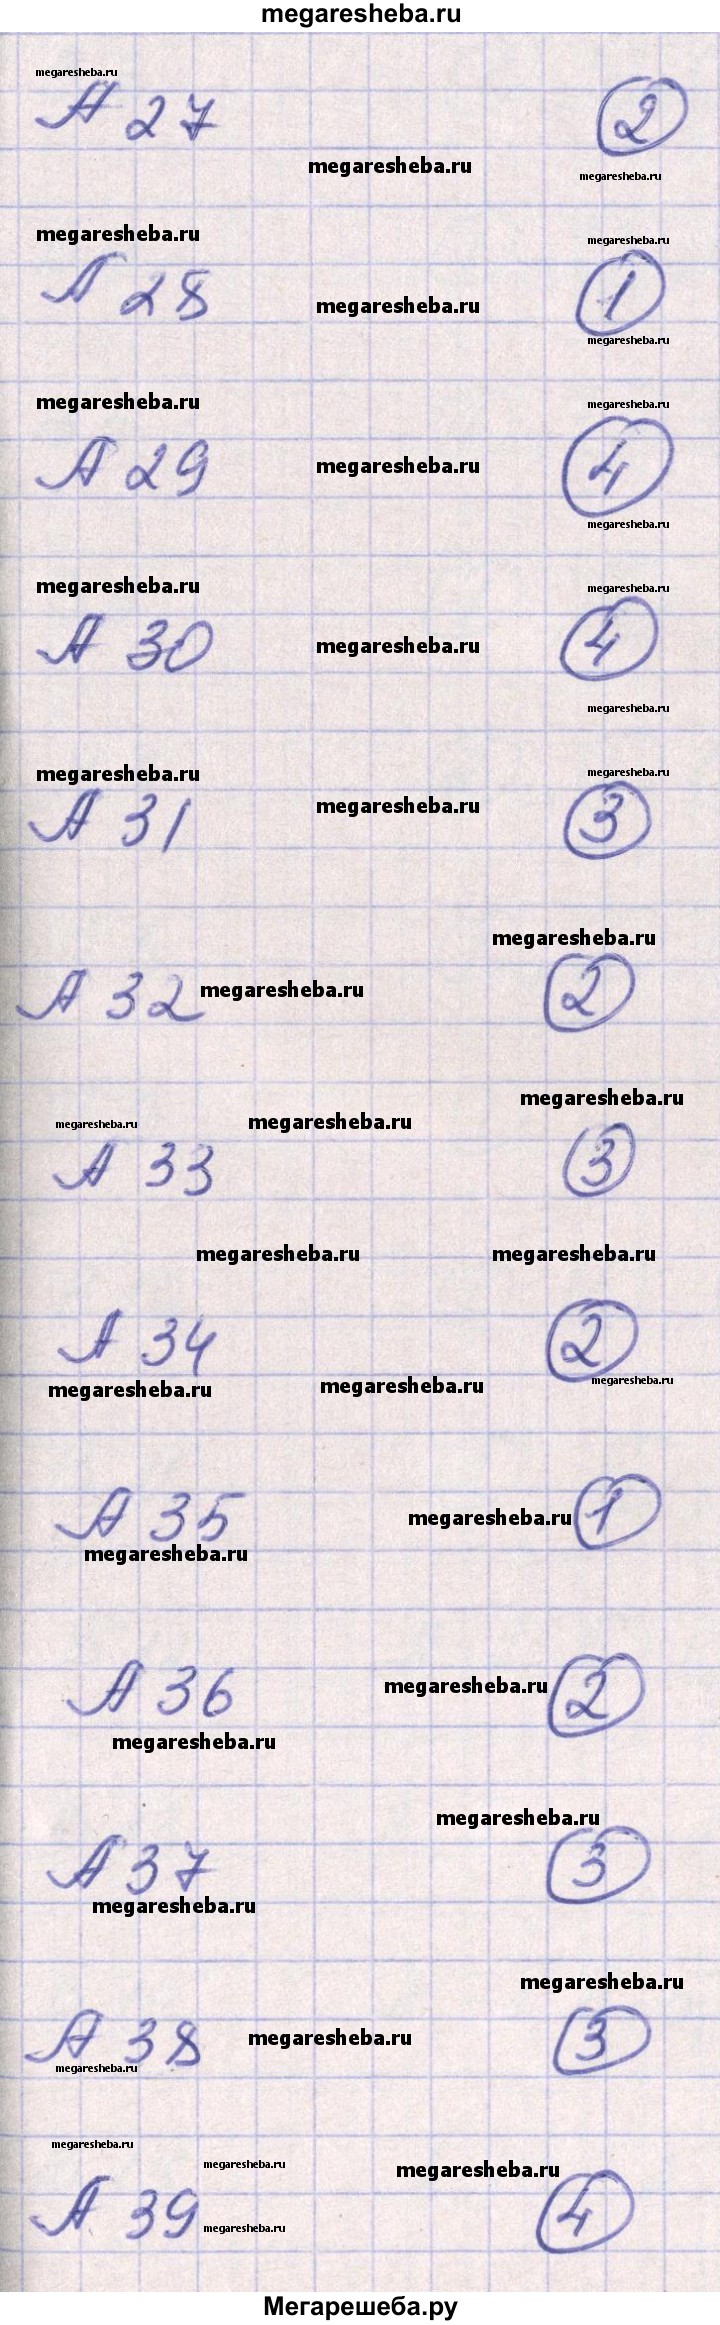 megaresheba.ru
megaresheba.ru
А 27 2
megaresheba.ru
megaresheba.ru
megaresheba.ru
megaresheba.ru
А 28 megaresheba.ru 1
megaresheba.ru
megaresheba.ru
megaresheba.ru
А 29 megaresheba.ru 4
megaresheba.ru
megaresheba.ru
megaresheba.ru
А 30 megaresheba.ru 4
megaresheba.ru
megaresheba.ru
megaresheba.ru
А 31 megaresheba.ru 3
megaresheba.ru
А 32 megaresheba.ru 2
megaresheba.ru
megaresheba.ru
megaresheba.ru
А 33 3
megaresheba.ru
megaresheba.ru
А 34 2
megaresheba.ru
megaresheba.ru
megaresheba.ru
А 35 megaresheba.ru 1
megaresheba.ru
А 36 megaresheba.ru 2
megaresheba.ru
megaresheba.ru
А 37 3
megaresheba.ru
megaresheba.ru
А 38 megaresheba.ru 3
megaresheba.ru
megaresheba.ru
megaresheba.ru
megaresheba.ru
А 39 megaresheba.ru 4
Мегарешеба.ру